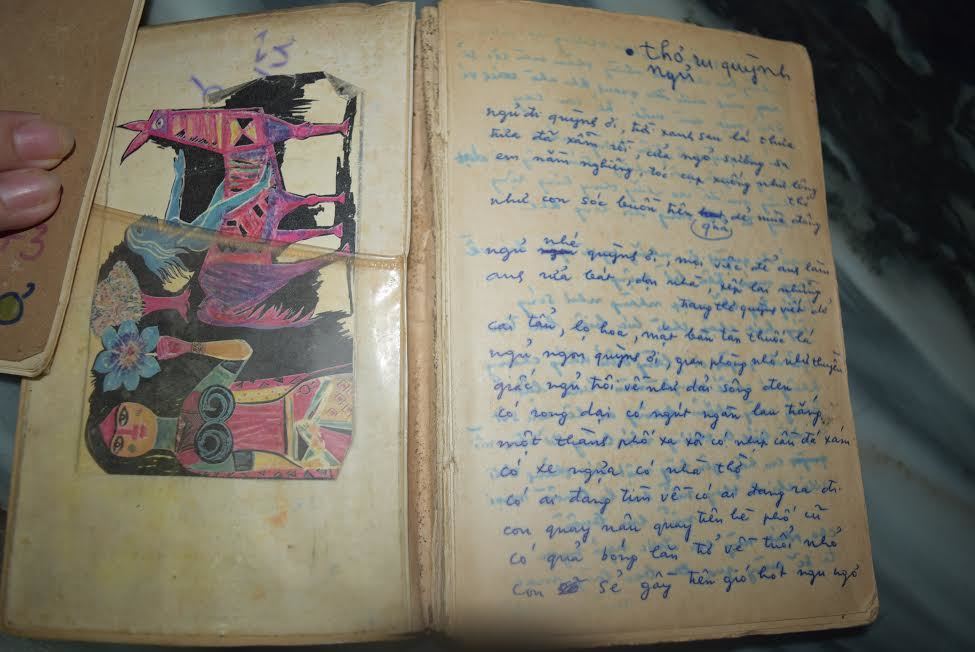 thơ ru quỳnh
ngủ
ngủ đi quỳnh ơi, trời xanh sau lá thưa
trưa đã xẫm rồi, cửa ngỏ
em nằm nghiêng, tóc cặp xuống như lông thỏ
như con sóc buồn trên quả dẻ mùa đông
ngủ nhé quỳnh ơi, mọi việc để anh làm
anh rửa bát, dọn nhà, xếp lại những
trang thơ quỳnh viết dở
cái tẩu, lọ hoa, mặt bàn tàn thuốc lá
ngủ ngon quỳnh ơi, gian phòng nhỏ như thuyền
giấc ngủ trôi về như dải sông đen
có rong dại có ngút ngàn lau trắng
một thành phố xa xôi có nhịp cầu đá xám
có xe ngựa có nhà thờ
có ai đang tìm về có ai đang ra đi
con quay nâu quay trên hè phố cũ
có quả bóng lăn từ về tuổi nhỏ
con sẻ gầy trên gió hót ngu ngơ